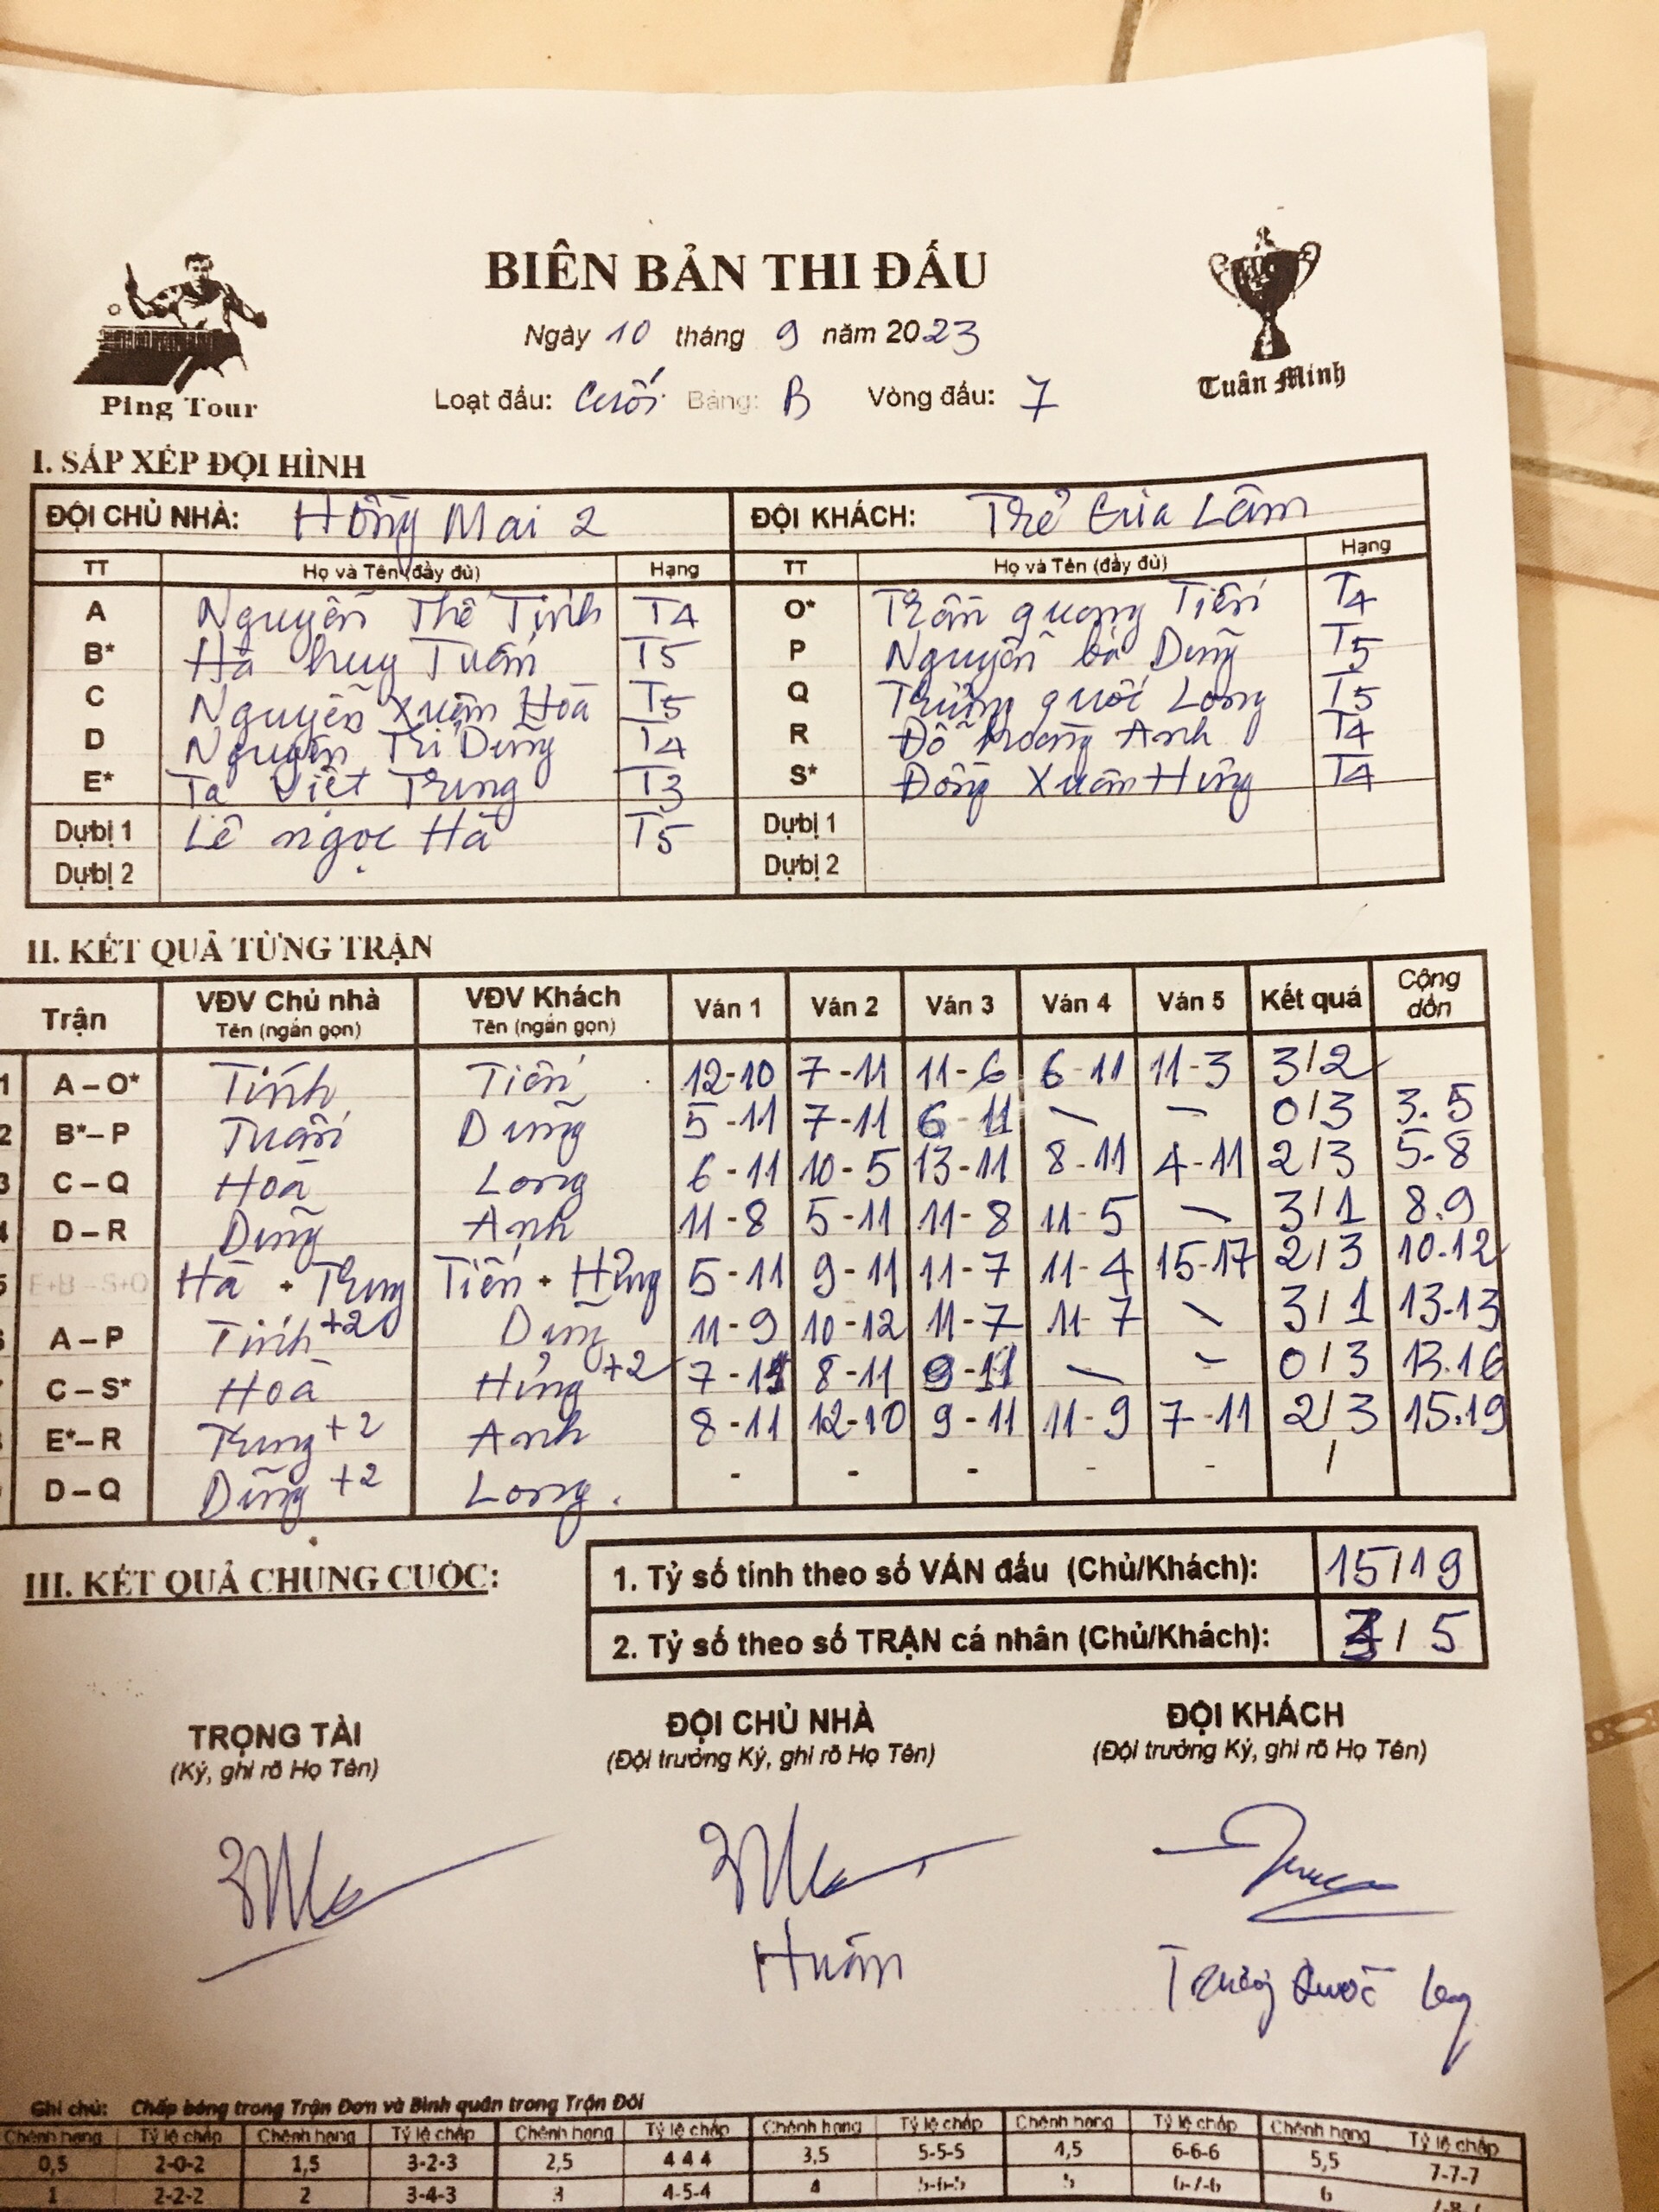 BIÊN BẢN THI ĐẤU
Ngày 10 tháng 9 năm 2023
Loạt đấu: Cuối Bảng: B Vòng đấu: 7
Ping Tour
Tuân Minh
I. SẮP XẾP ĐỘI HÌNH
ĐỘI CHỦ NHÀ: Hồng Mai 2 ĐỘI KHÁCH: Trẻ Gia Lâm
TT Họ và Tên (đầy đủ) Hạng TT Họ và Tên (đầy đủ) Hạng
A Nguyễn Thế Tính T4 O* Trần quang Tiến T4
B* Hà huy Tuấn T5 P Nguyễn bá Dũng T5
C Nguyễn Xuân Hoà T5 Q Trương quốc Long T5
D Nguyễn Trí Dũng T4 R Đỗ hoàng Anh T4
E* Tạ Việt Trung T3 S* Đồng Xuân Hưng T4
Dự bị 1 Lê ngọc Hà T5 Dự bị 1
Dự bị 2 Dự bị 2
II. KẾT QUẢ TỪNG TRẬN
Trận VĐV Chủ nhà Tên (ngắn gọn) VĐV Khách Tên (ngắn gọn) Ván 1 Ván 2 Ván 3 Ván 4 Ván 5 Kết quả Cộng dồn
1 A – O* Tính Tiến 12-10 7-11 11-6 6-11 11-3 3/2
2 B* – P Tuấn Dũng 5-11 7-11 6-11 - - 0/3 3.5
3 C – Q Hoà Long 6-11 10-5 13-11 8-11 4-11 2/3 5-8
4 D – R Dũng Anh 11-8 5-11 11-8 11-5 - 3/1 8.9
5 E+B – S+O Hà + Trung Tiến + Hưng 5-11 9-11 11-7 11-4 15-17 2/3 10-12
A – P Tính +2 Dũng 11-9 10-12 11-7 11-7 - 3/1 13-13
C – S* Hoà Hưng +2 7-11 8-11 9-11 - - 0/3 13.16
E* – R Trung +2 Anh 8-11 12-10 9-11 11-9 7-11 2/3 15.19
D – Q Dũng +2 Long. - - - - - /
III. KẾT QUẢ CHUNG CUỘC:
1. Tỷ số tính theo số VÁN đấu (Chủ/Khách): 15/19
2. Tỷ số theo số TRẬN cá nhân (Chủ/Khách): 3/5
TRỌNG TÀI ĐỘI CHỦ NHÀ ĐỘI KHÁCH
(Ký, ghi rõ Họ Tên) (Đội trưởng Ký, ghi rõ Họ Tên) (Đội trưởng Ký, ghi rõ Họ Tên)
Huấn
Trương Quốc Long
Ghi chú: Chấp bóng trong Trận Đơn và Bình quân trong Trận Đôi
Chênh hạng Tỷ lệ chấp Chênh hạng Tỷ lệ chấp Chênh hạng Tỷ lệ chấp Chênh hạng Tỷ lệ chấp Chênh hạng Tỷ lệ chấp Chênh hạng Tỷ lệ chấp
0,5 2-0-2 1,5 3-2-3 2,5 4 4 4 3,5 5-5-5 4,5 6-6-6 5,5 7-7-7
1 2-2-2 2 3-4-3 3 4-5-4 4 5-6-5 5 6-7-6 6